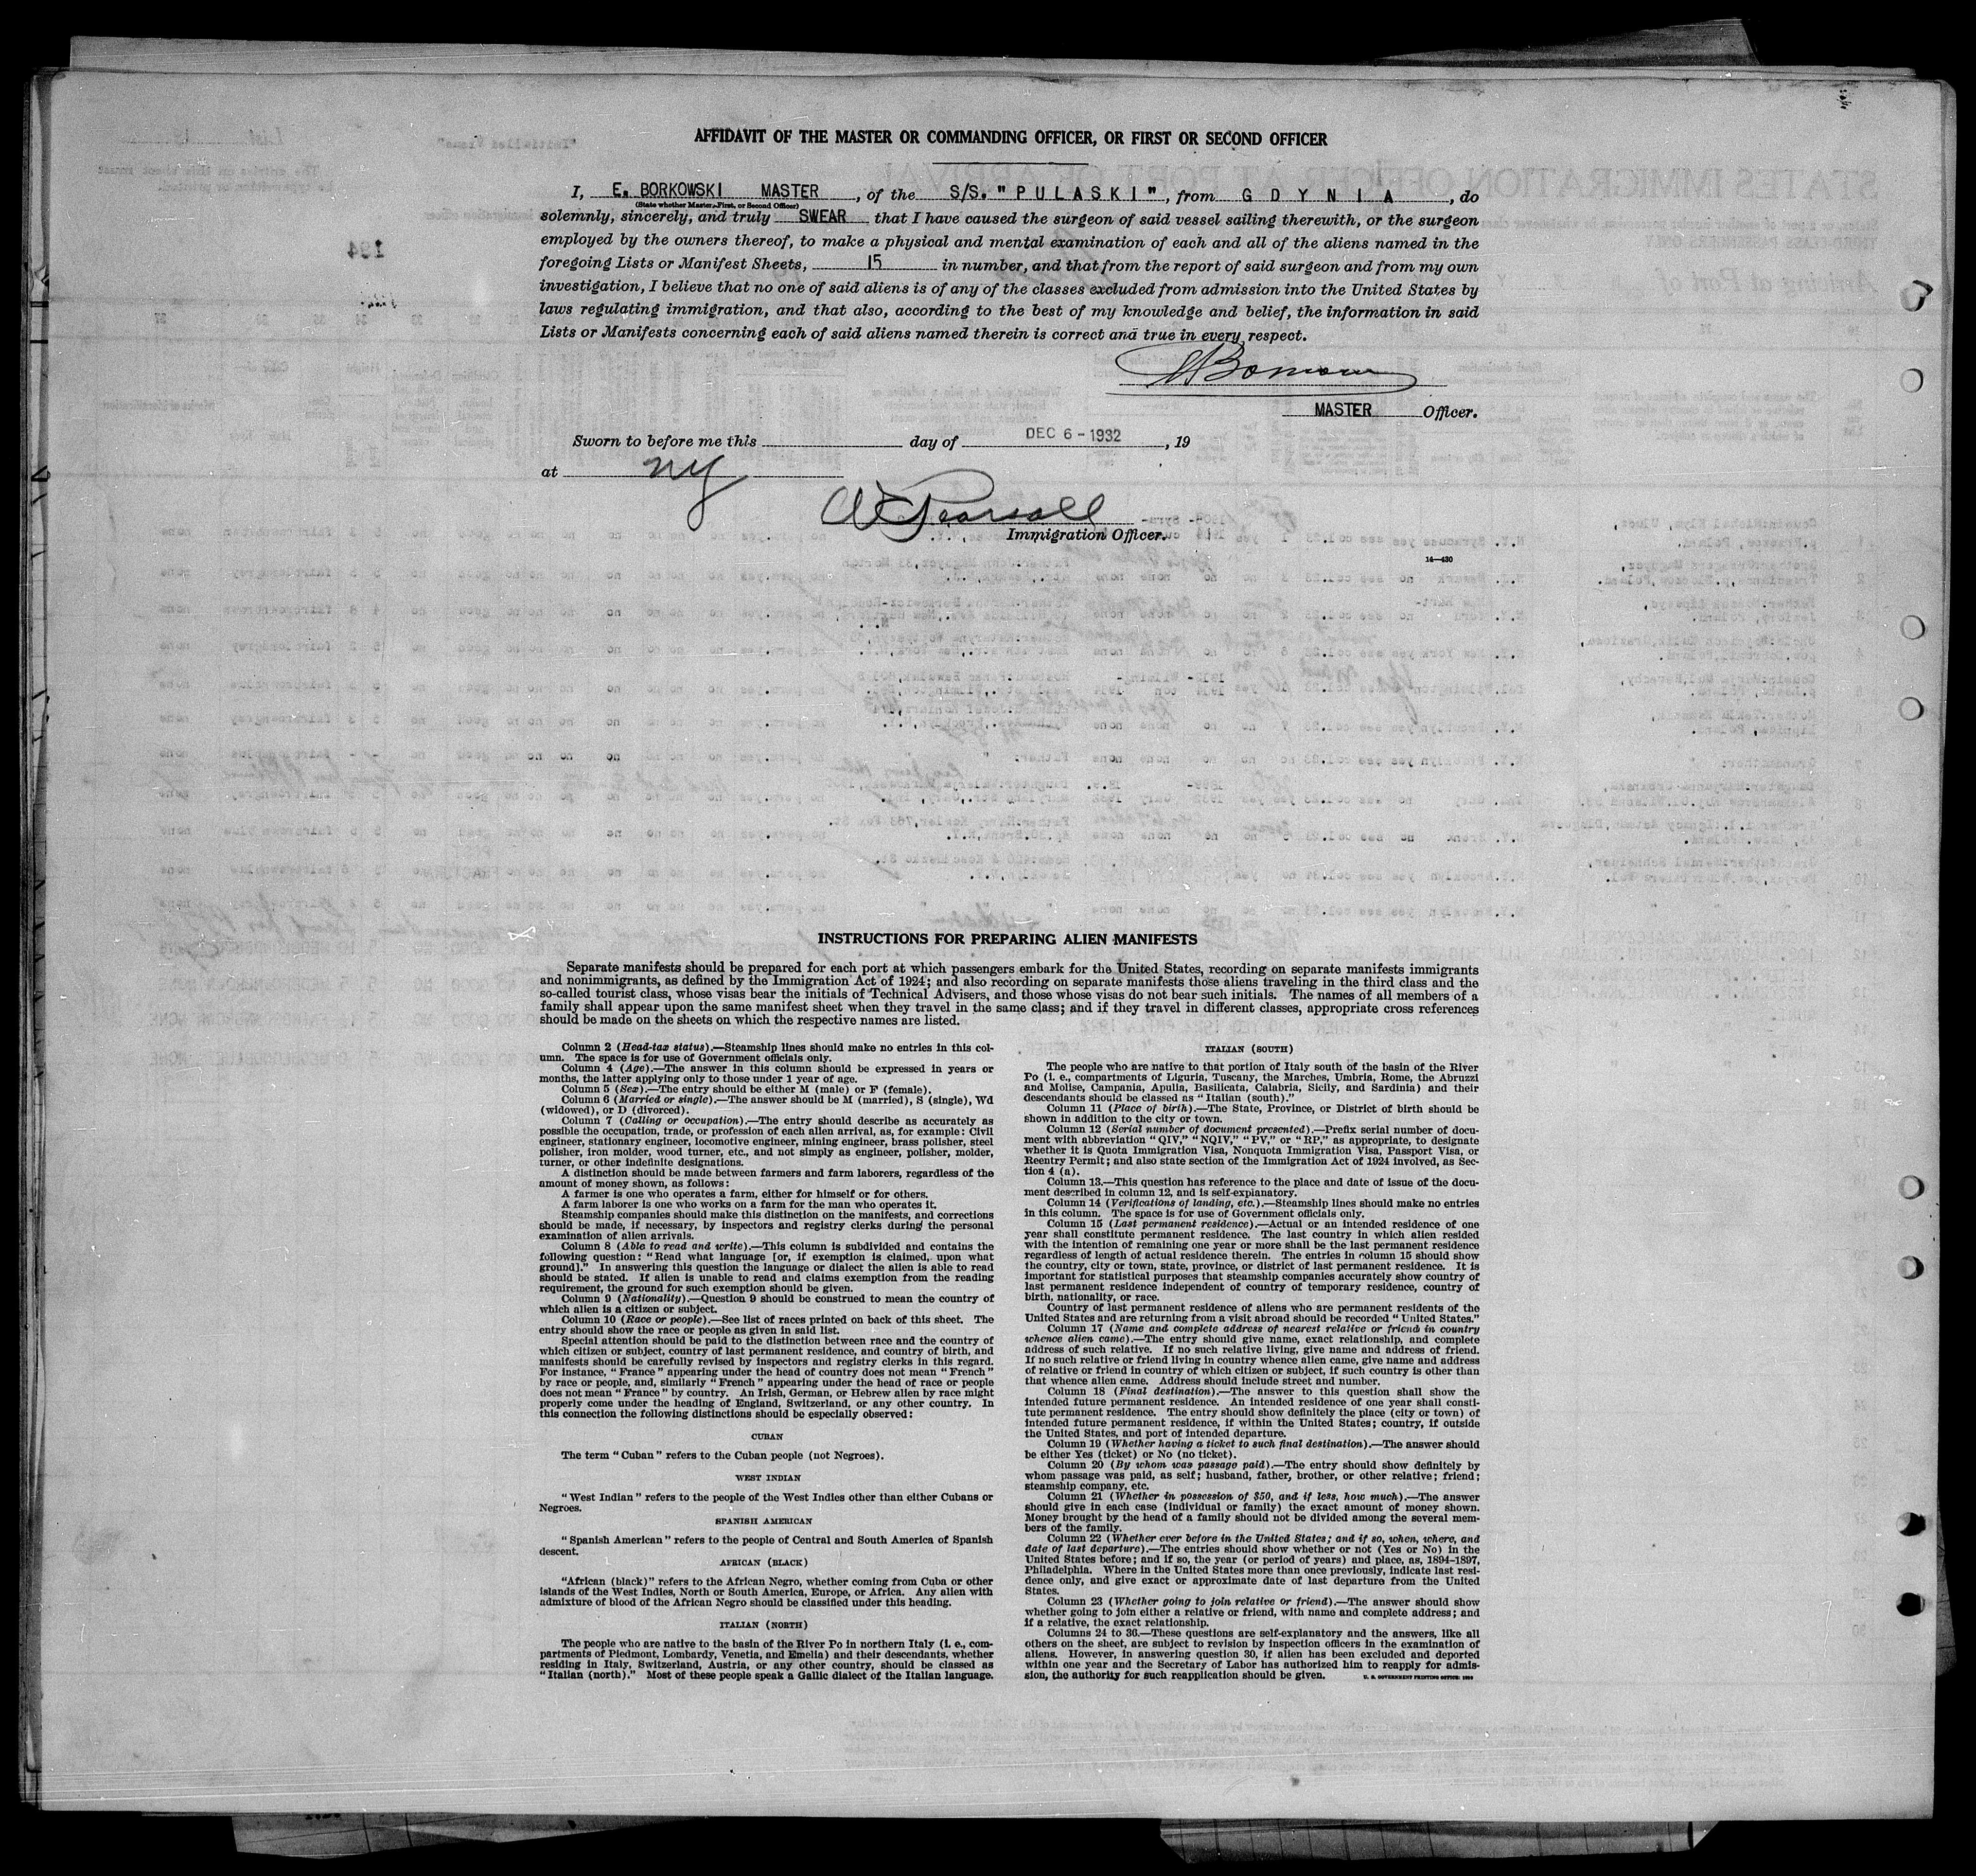 AFFIDAVIT OF THE MASTER OR COMMANDING OFFICER, OR FIRST OR SECOND OFFICER
I, E. BORKOWSKI MASTER, of the S/S. "PULASKI", from GDYNIA, do
(State whether Master, First, or Second Officer)
solemnly, sincerely, and truly SWEAR that I have caused the surgeon of said vessel sailing therewith, or the surgeon
employed by the owners thereof, to make a physical and mental examination of each and all of the aliens named in the
foregoing Lists or Manifest Sheets, 15 in number, and that from the report of said surgeon and from my own
investigation, I believe that no one of said aliens is of any of the classes excluded from admission into the United States by
laws regulating immigration, and that also, according to the best of my knowledge and belief, the information in said
Lists or Manifests concerning each of said aliens named therein is correct and true in every respect.
MASTER Officer.
Sworn to before me this day of DEC 6-1932, 19
at NY
Pearsall
Immigration Officer.
14—430
INSTRUCTIONS FOR PREPARING ALIEN MANIFESTS
Separate manifests should be prepared for each port at which passengers embark for the United States, recording on separate manifests immigrants
and nonimmigrants, as defined by the Immigration Act of 1924; and also recording on separate manifests those aliens traveling in the third class and the
so-called tourist class, whose visas bear the initials of Technical Advisers, and those whose visas do not bear such initials. The names of all members of a
family shall appear upon the same manifest sheet when they travel in the same class; and if they travel in different classes, appropriate cross references
should be made on the sheets on which the respective names are listed.
Column 2 (Head-tax status).—Steamship lines should make no entries in this col-
umn. The space is for use of Government officials only.
Column 4 (Age).—The answer in this column should be expressed in years or
months, the latter applying only to those under 1 year of age.
Column 5 (Sex).—The entry should be either M (male) or F (female).
Column 6 (Married or single).—The answer should be M (married), S (single), Wd
(widowed), or D (divorced).
Column 7 (Calling or occupation).—The entry should describe as accurately as
possible the occupation, trade, or profession of each alien arrival, as, for example: Civil
engineer, stationary engineer, locomotive engineer, mining engineer, brass polisher, steel
polisher, iron molder, wood turner, etc., and not simply as engineer, polisher, molder,
turner, or other indefinite designations.
A distinction should be made between farmers and farm laborers, regardless of the
amount of money shown, as follows:
A farmer is one who operates a farm, either for himself or for others.
A farm laborer is one who works on a farm for the man who operates it.
Steamship companies should make this distinction on the manifests, and corrections
should be made, if necessary, by inspectors and registry clerks during the personal
examination of alien arrivals.
Column 8 (Able to read and write).—This column is subdivided and contains the
following question: "Read what language [or, if exemption is claimed, upon what
ground]." In answering this question the language or dialect the alien is able to read
should be stated. If alien is unable to read and claims exemption from the reading
requirement, the ground for such exemption should be given.
Column 9 (Nationality).—Question 9 should be construed to mean the country of
which alien is a citizen or subject.
Column 10 (Race or people).—See list of races printed on back of this sheet. The
entry should show the race or people as given in said list.
Special attention should be paid to the distinction between race and the country of
which citizen or subject, country of last permanent residence, and country of birth, and
manifests should be carefully revised by inspectors and registry clerks in this regard.
For instance, "France" appearing under the head of country does not mean "French"
by race or people, and, similarly "French" appearing under the head of race or people
does not mean "France" by country. An Irish, German, or Hebrew alien by race might
properly come under the heading of England, Switzerland, or any other country. In
this connection the following distinctions should be especially observed:
CUBAN
The term "Cuban" refers to the Cuban people (not Negroes).
WEST INDIAN
"West Indian" refers to the people of the West Indies other than either Cubans or
Negroes.
SPANISH AMERICAN
"Spanish American" refers to the people of Central and South America of Spanish
descent.
AFRICAN (BLACK)
"African (black)" refers to the African Negro, whether coming from Cuba or other
islands of the West Indies, North or South America, Europe, or Africa. Any alien with
admixture of blood of the African Negro should be classified under this heading.
ITALIAN (NORTH)
The people who are native to the basin of the River Po in northern Italy (i. e., com-
partments of Piedmont, Lombardy, Venetia, and Emelia) and their descendants, whether
residing in Italy, Switzerland, Austria, or any other country, should be classed as
"Italian (north)." Most of these people speak a Gallic dialect of the Italian language.
ITALIAN (SOUTH)
The people who are native to that portion of Italy south of the basin of the River
Po (i. e., compartments of Liguria, Tuscany, the Marches, Umbria, Rome, the Abruzzi
and Molise, Campania, Apulia, Basilicata, Calabria, Sicily, and Sardinia) and their
descendants should be classed as "Italian (south)."
Column 11 (Place of birth).—The State, Province, or District of birth should be
shown in addition to the city or town.
Column 12 (Serial number of document presented).—Prefix serial number of docu-
ment with abbreviation "QIV," "NQIV," "PV," or "RP," as appropriate, to designate
whether it is Quota Immigration Visa, Nonquota Immigration Visa, Passport Visa, or
Reentry Permit; and also state section of the Immigration Act of 1924 involved, as Sec-
tion 4 (a).
Column 13.—This question has reference to the place and date of issue of the docu-
ment described in column 12, and is self-explanatory.
Column 14 (Verifications of landing, etc.).—Steamship lines should make no entries
in this column. The space is for use of Government officials only.
Column 15 (Last permanent residence).—Actual or an intended residence of one
year shall constitute permanent residence. The last country in which alien resided
with the intention of remaining one year or more shall be the last permanent residence
regardless of length of actual residence therein. The entries in column 15 should show
the country, city or town, state, province, or district of last permanent residence. It is
important for statistical purposes that steamship companies accurately show country of
last permanent residence independent of country of temporary residence, country of
birth, nationality, or race.
Country of last permanent residence of aliens who are permanent residents of the
United States and are returning from a visit abroad should be recorded "United States."
Column 17 (Name and complete address of nearest relative or friend in country
whence alien came).—The entry should give name, exact relationship, and complete
address of such relative. If no such relative living, give name and address of friend.
If no such relative or friend living in country whence alien came, give name and address
of relative or friend in country of which citizen or subject, if such country is other than
that whence alien came. Address should include street and number.
Column 18 (Final destination).—The answer to this question shall show the
intended future permanent residence. An intended residence of one year shall consti-
tute permanent residence. The entry should show definitely the place (city or town) of
intended future permanent residence, if within the United States; country, if outside
the United States, and port of intended departure.
Column 19 (Whether having a ticket to such final destination).—The answer should
be either Yes (ticket) or No (no ticket).
Column 20 (By whom was passage paid).—The entry should show definitely by
whom passage was paid, as self; husband, father, brother, or other relative; friend;
steamship company, etc.
Column 21 (Whether in possession of $50, and if less, how much).—The answer
should give in each case (individual or family) the exact amount of money shown.
Money brought by the head of a family should not be divided among the several mem-
bers of the family.
Column 22 (Whether ever before in the United States; and if so, when, where, and
date of last departure).—The entries should show whether or not (Yes or No) in the
United States before; and if so, the year (or period of years) and place, as, 1894-1897,
Philadelphia. Where in the United States more than once previously, indicate last resi-
dence only, and give exact or approximate date of last departure from the United
States.
Column 23 (Whether going to join relative or friend).—The answer should show
whether going to join either a relative or friend, with name and complete address; and
if a relative, the exact relationship.
Columns 24 to 36.—These questions are self-explanatory and the answers, like all
others on the sheet, are subject to revision by inspection officers in the examination of
aliens. However, in answering question 30, if alien has been excluded and deported
within one year and the Secretary of Labor has authorized him to reapply for admis-
sion, the authority for such reapplication should be given.
U. S. GOVERNMENT PRINTING OFFICE